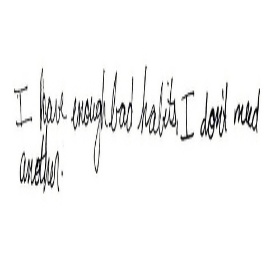 I have enough bad habits, I don't need
another.